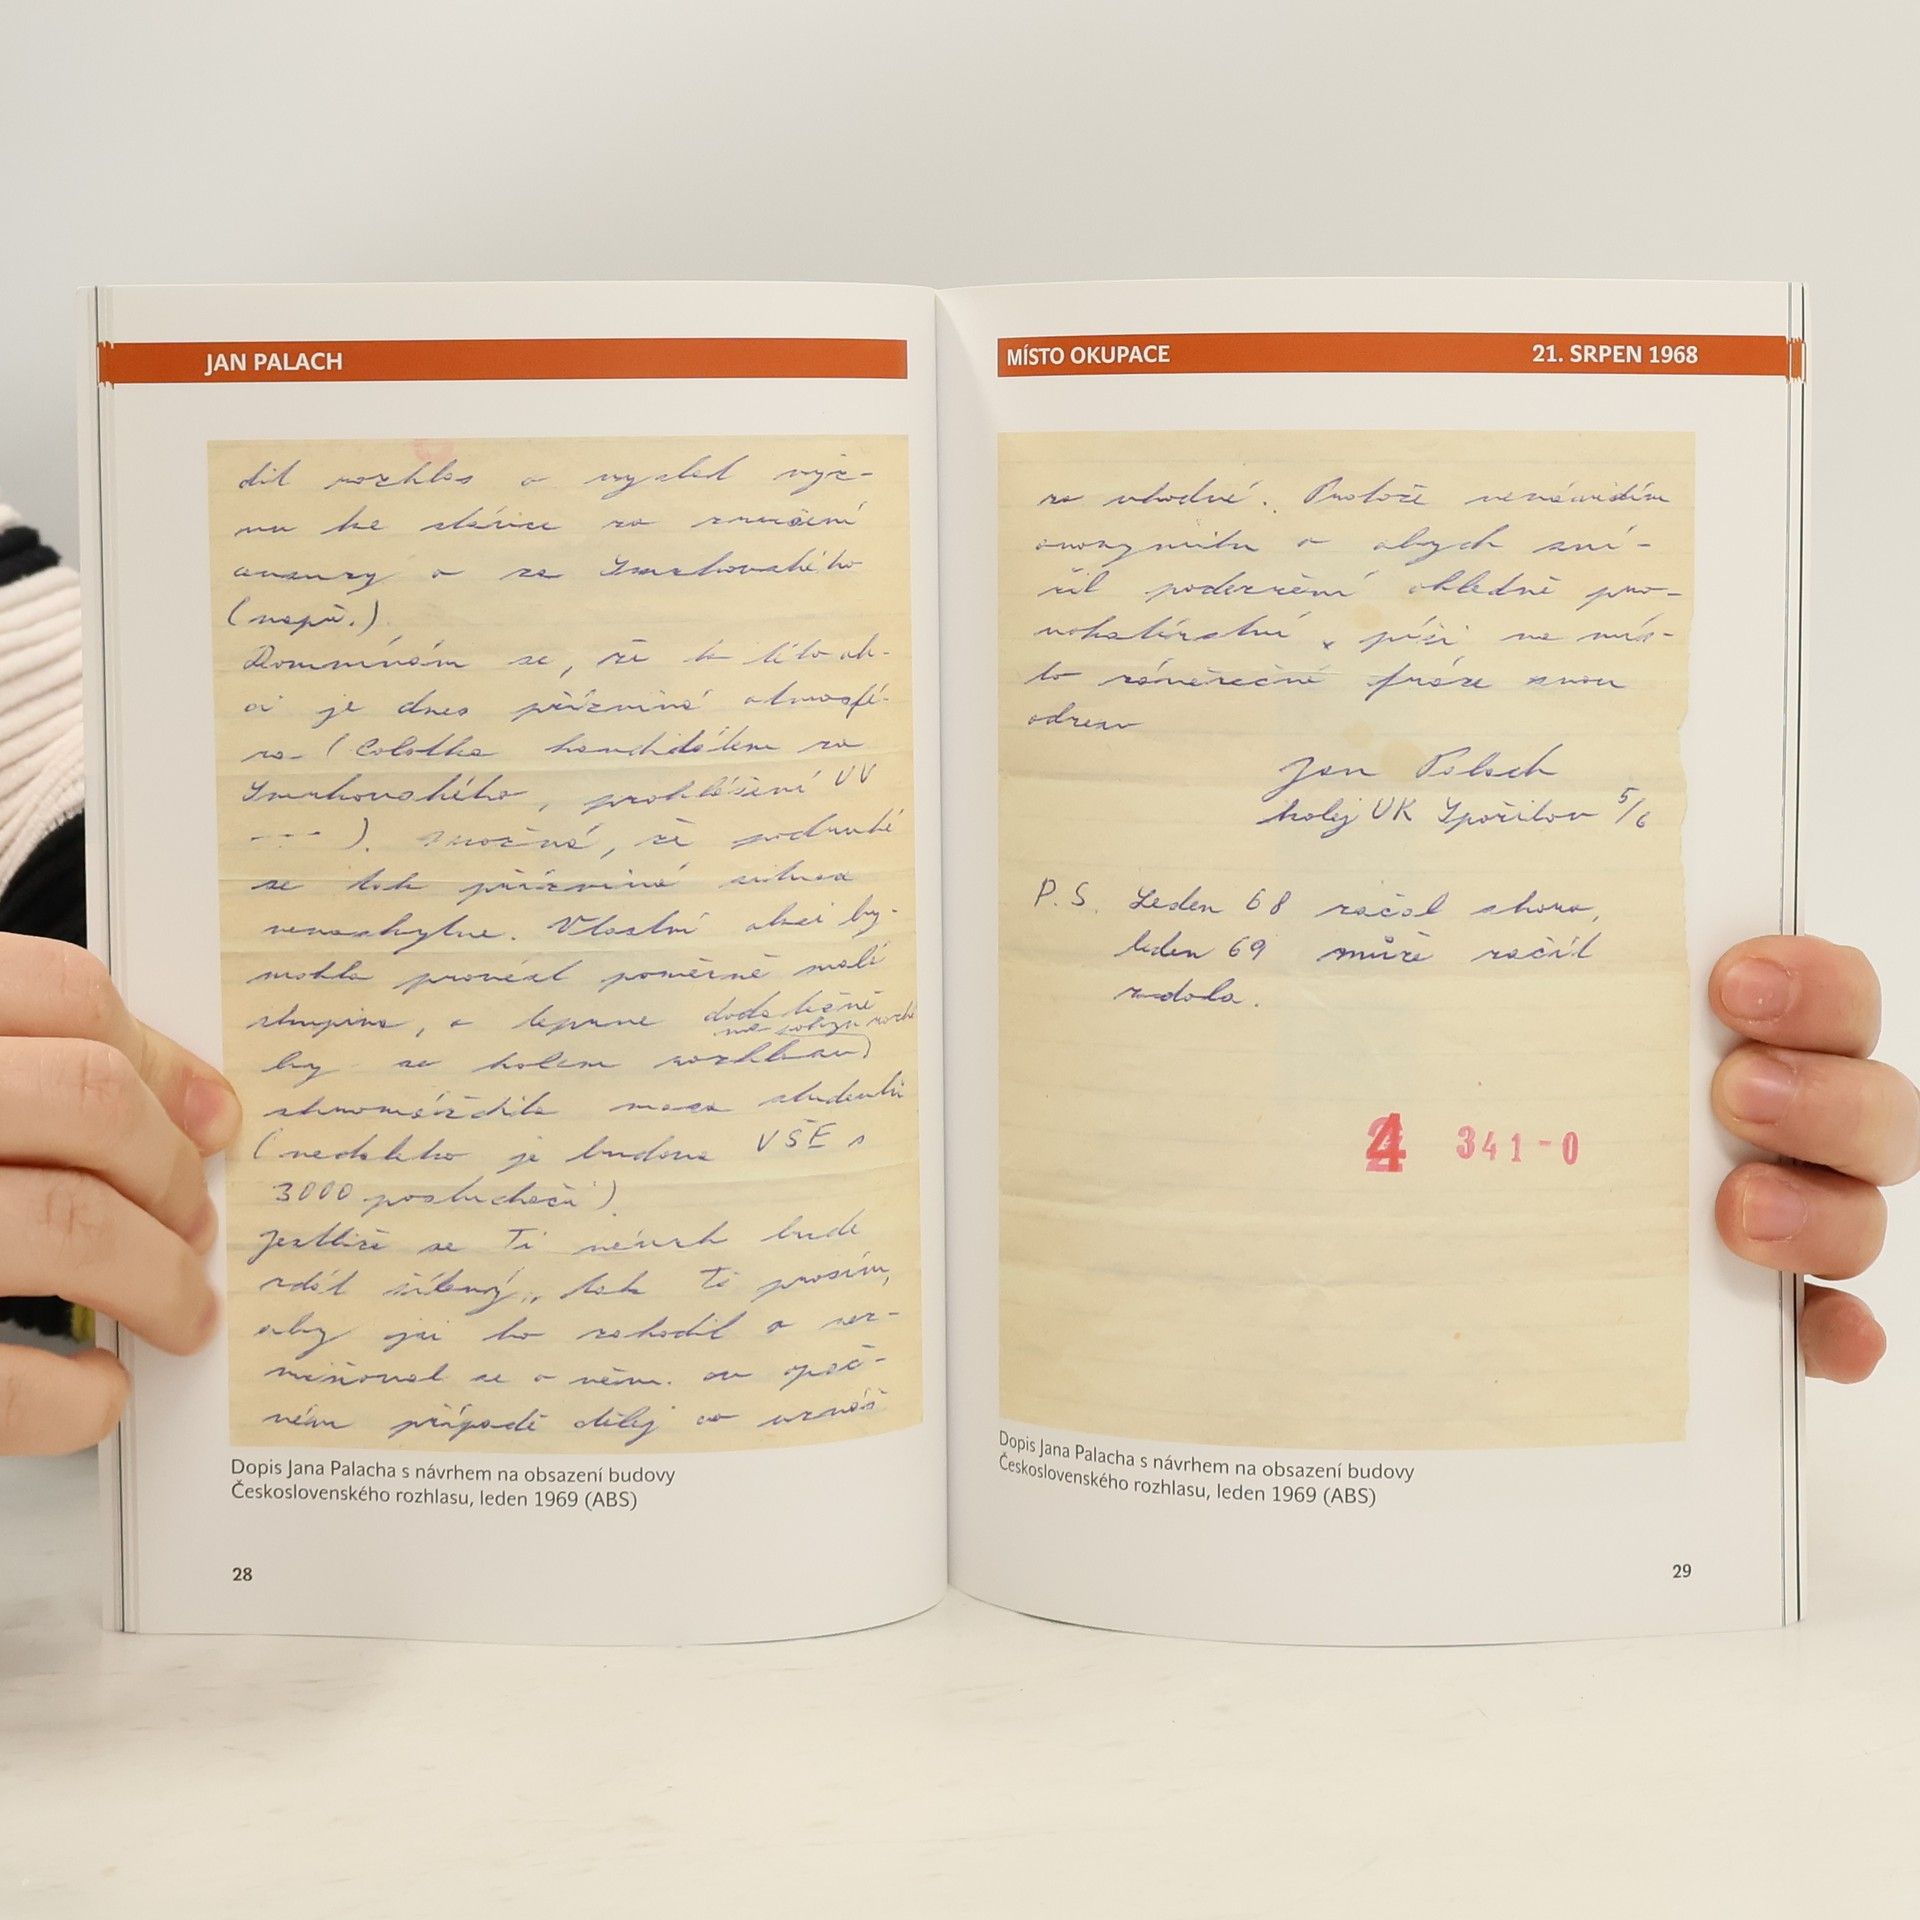 JAN PALACH
dit rozhlas a vyslat výz-
vu ke stávce za zrušení
cenzury a za Smrkovského
(např.).
Domnívám se, že k této ak-
ci je dnes příznivá atmosfé-
ra (Colotka kandidátem za
Smrkovského, prohlášení ÚV
---). Možná, že podruhé
se tak příznivá situace
nenaskytne. Vlastní akci by
mohla provést poměrně malá
skupina, a teprve dodatečně
by se kolem rozhlasu
shromáždila masa studentů
(nedaleko je budova VŠE s
3000 posluchači).
Jestliže se Ti návrh bude
zdát šílený, tak Tě prosím,
aby jsi ho zahodil a nez-
miňoval se o něm. V opač-
ném případě dělej co uznáš
Dopis Jana Palacha s návrhem na obsazení budovy
Československého rozhlasu, leden 1969 (ABS)
28
MÍSTO OKUPACE 21. SRPEN 1968
za vhodné. Protože nenávidím
anonymitu a abych sní-
žil podezření ohledně pro-
vokatérství, píši na mís-
to závěrečné fráze svou
adresu
Jan Palach
kolej UK Spořilov 5/6
P.S. Leden 68 začal shora,
leden 69 může začít
zdola.
4 341-0
Dopis Jana Palacha s návrhem na obsazení budovy
Československého rozhlasu, leden 1969 (ABS)
29